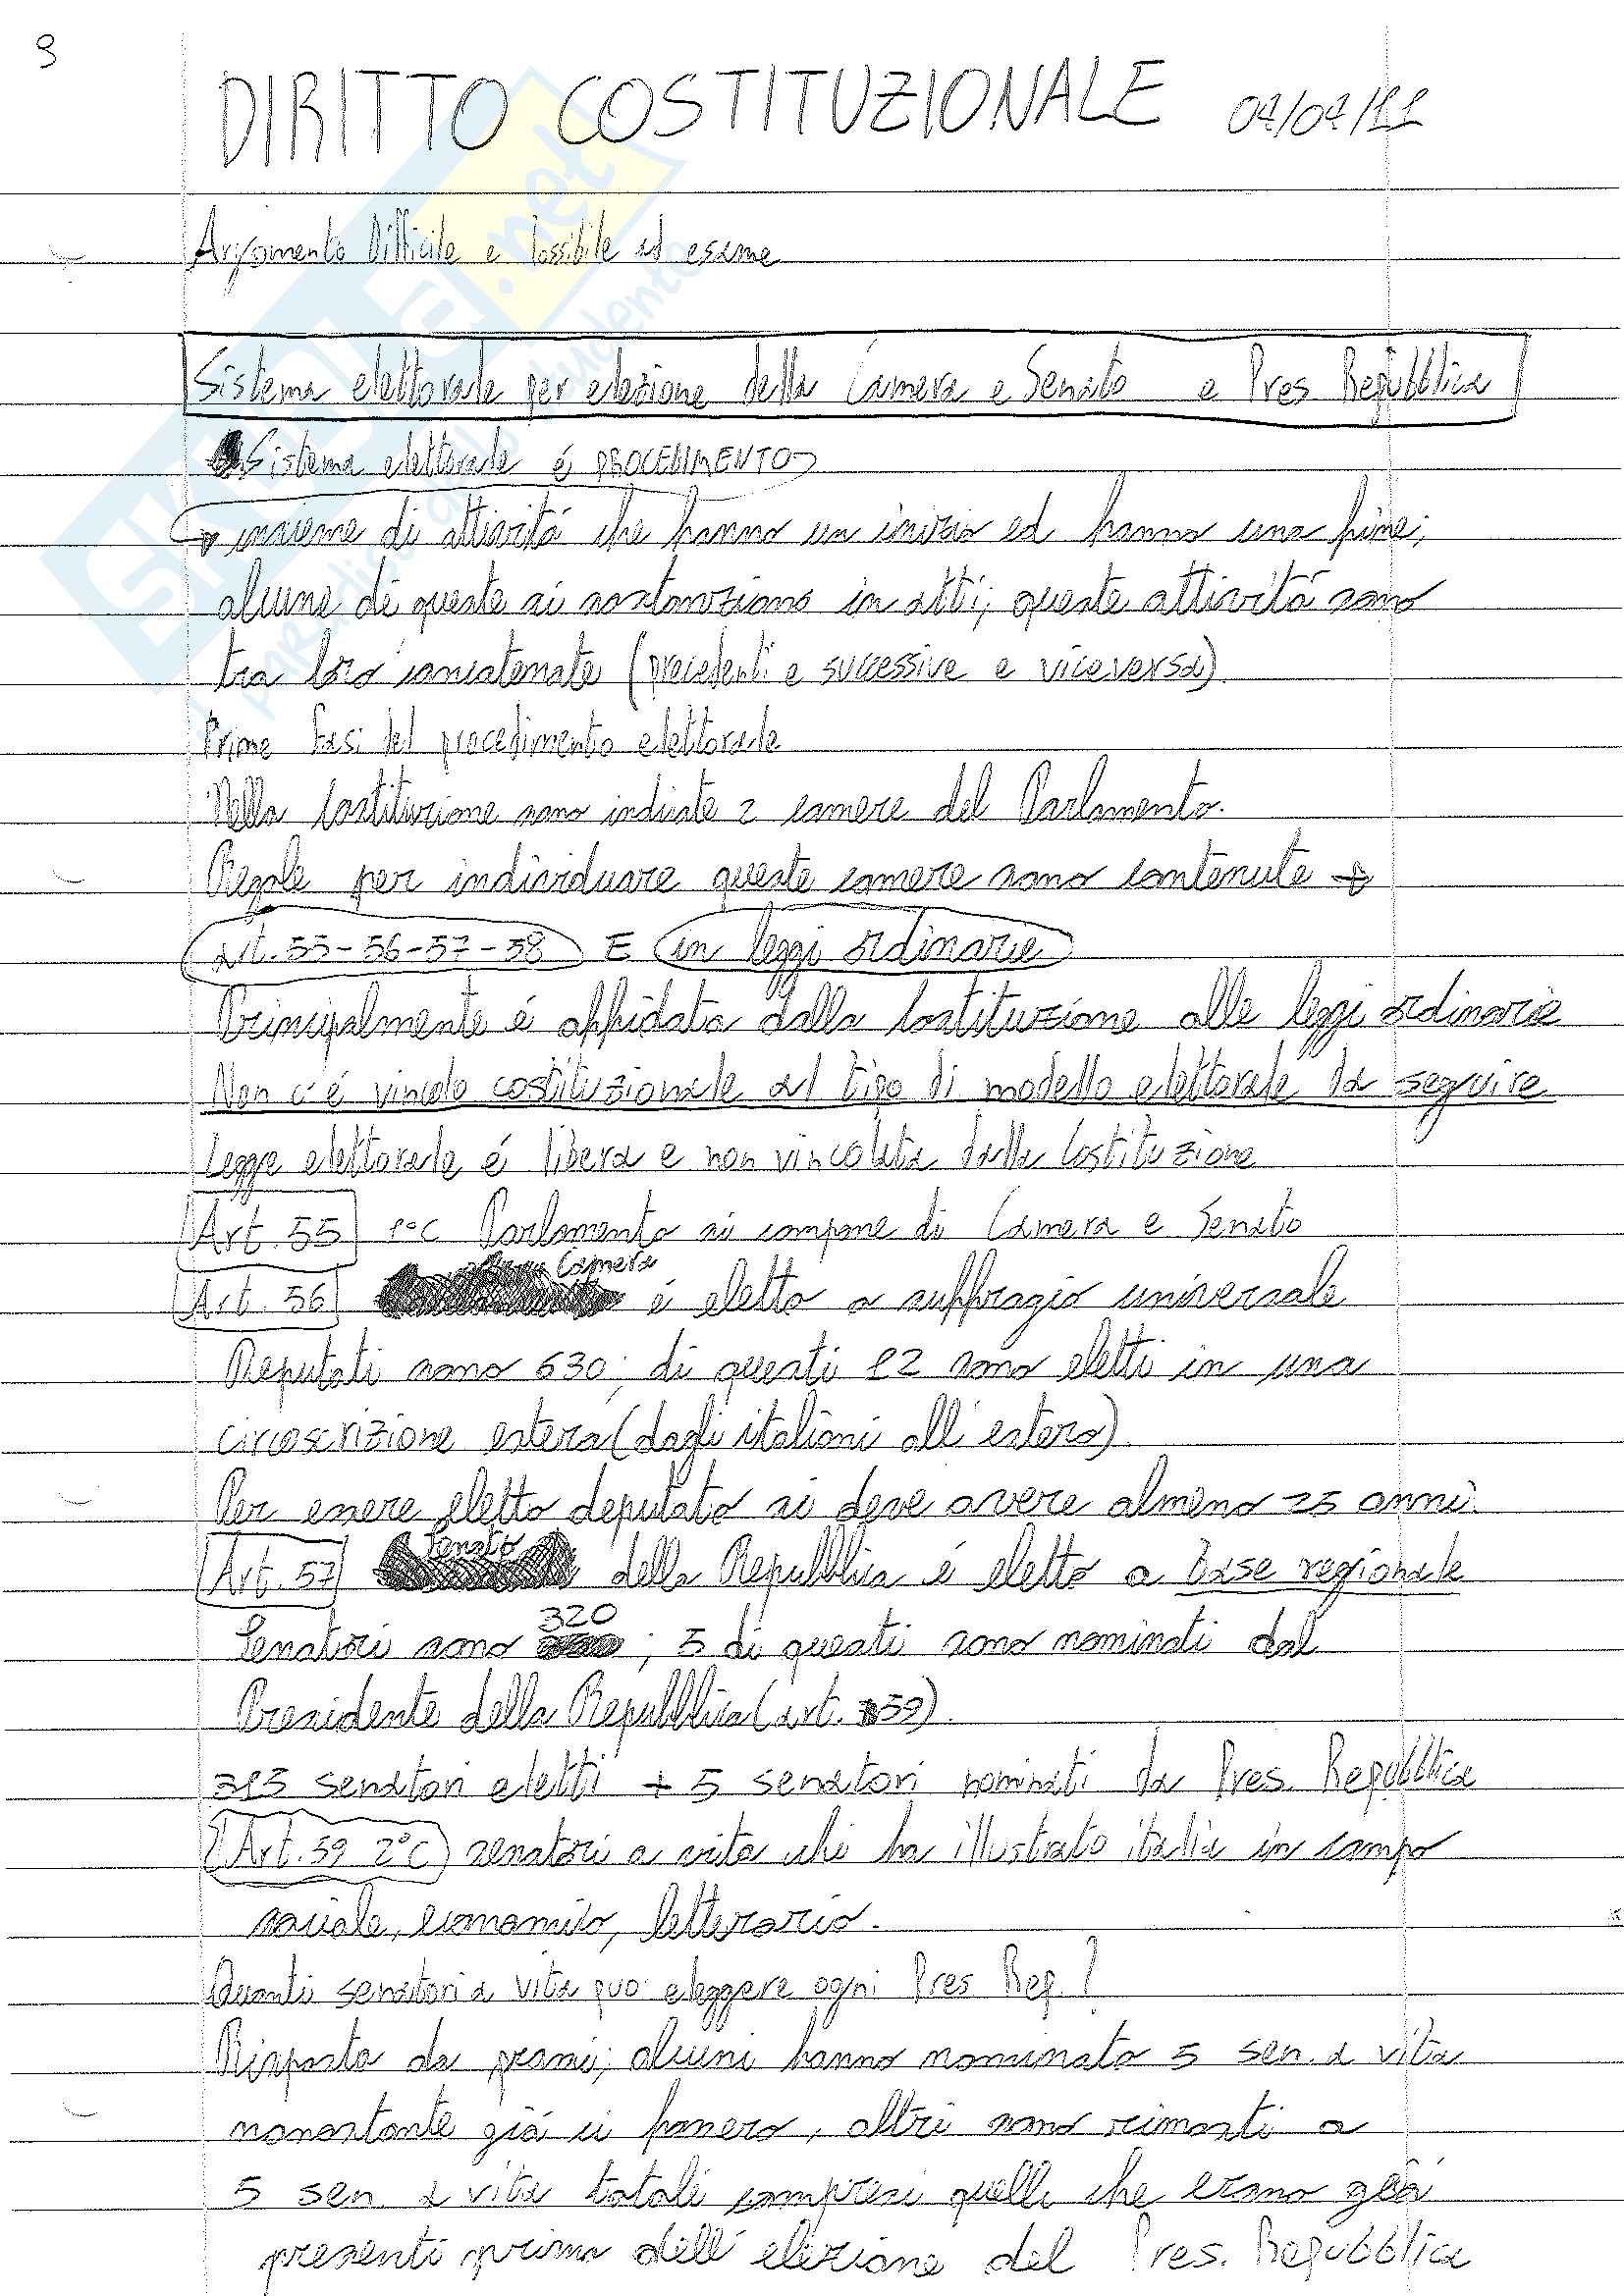 9
DIRITTO COSTITUZIONALE 07/07/11
Argomento difficile e possibile ad esame
Sistema elettorale per elezione della Camera e Senato e Pres Repubblica
Sistema elettorale é PROCEDIMENTO
insieme di attivitá che hanno un inizio ed hanno una fine;
alcune di queste si sostanziano in atti; queste attivitá sono
tra loro concatenate (precedenti e successive e viceversa)
Prime fasi del procedimento elettorale
Nella Costituzione sono indicate 2 camere del Parlamento.
Regole per individuare queste camere sono contenute →
art. 55-56-57-58 E in leggi ordinarie
Principalmente é affidata dalla Costituzione alle leggi ordinarie
Non c'é vincolo costituzionale al tipo di modello elettorale da seguire
Legge elettorale é libera e non vincolata dalla Costituzione
Art. 55 1°C Parlamento si compone di Camera e Senato
Art. 56 Camera é eletto a suffragio universale
Deputati sono 630; di questi 12 sono eletti in una
circoscrizione estera (dagli italiani all'estero)
Per essere eletto deputato si deve avere almeno 25 anni.
Art. 57 Senato della Repubblica é eletto a base regionale
Senatori sono 320; 5 di questi sono nominati dal
Presidente della Repubblica (art. 59).
315 senatori eletti + 5 senatori nominati da Pres. Repubblica
Art. 59 2°C senatori a vita chi ha illustrato italia in campo
sociale, economico, letterario.
Quanti senatori a vita puo' eleggere ogni Pres Rep.?
Risposta da prassi; alcuni hanno nominato 5 sen. a vita
nonostante giá ci fossero, altri sono rimasti a
5 sen. a vita totali compresi quelli che erano giá
presenti prima dell'elezione del Pres. Repubblica
skuola.net